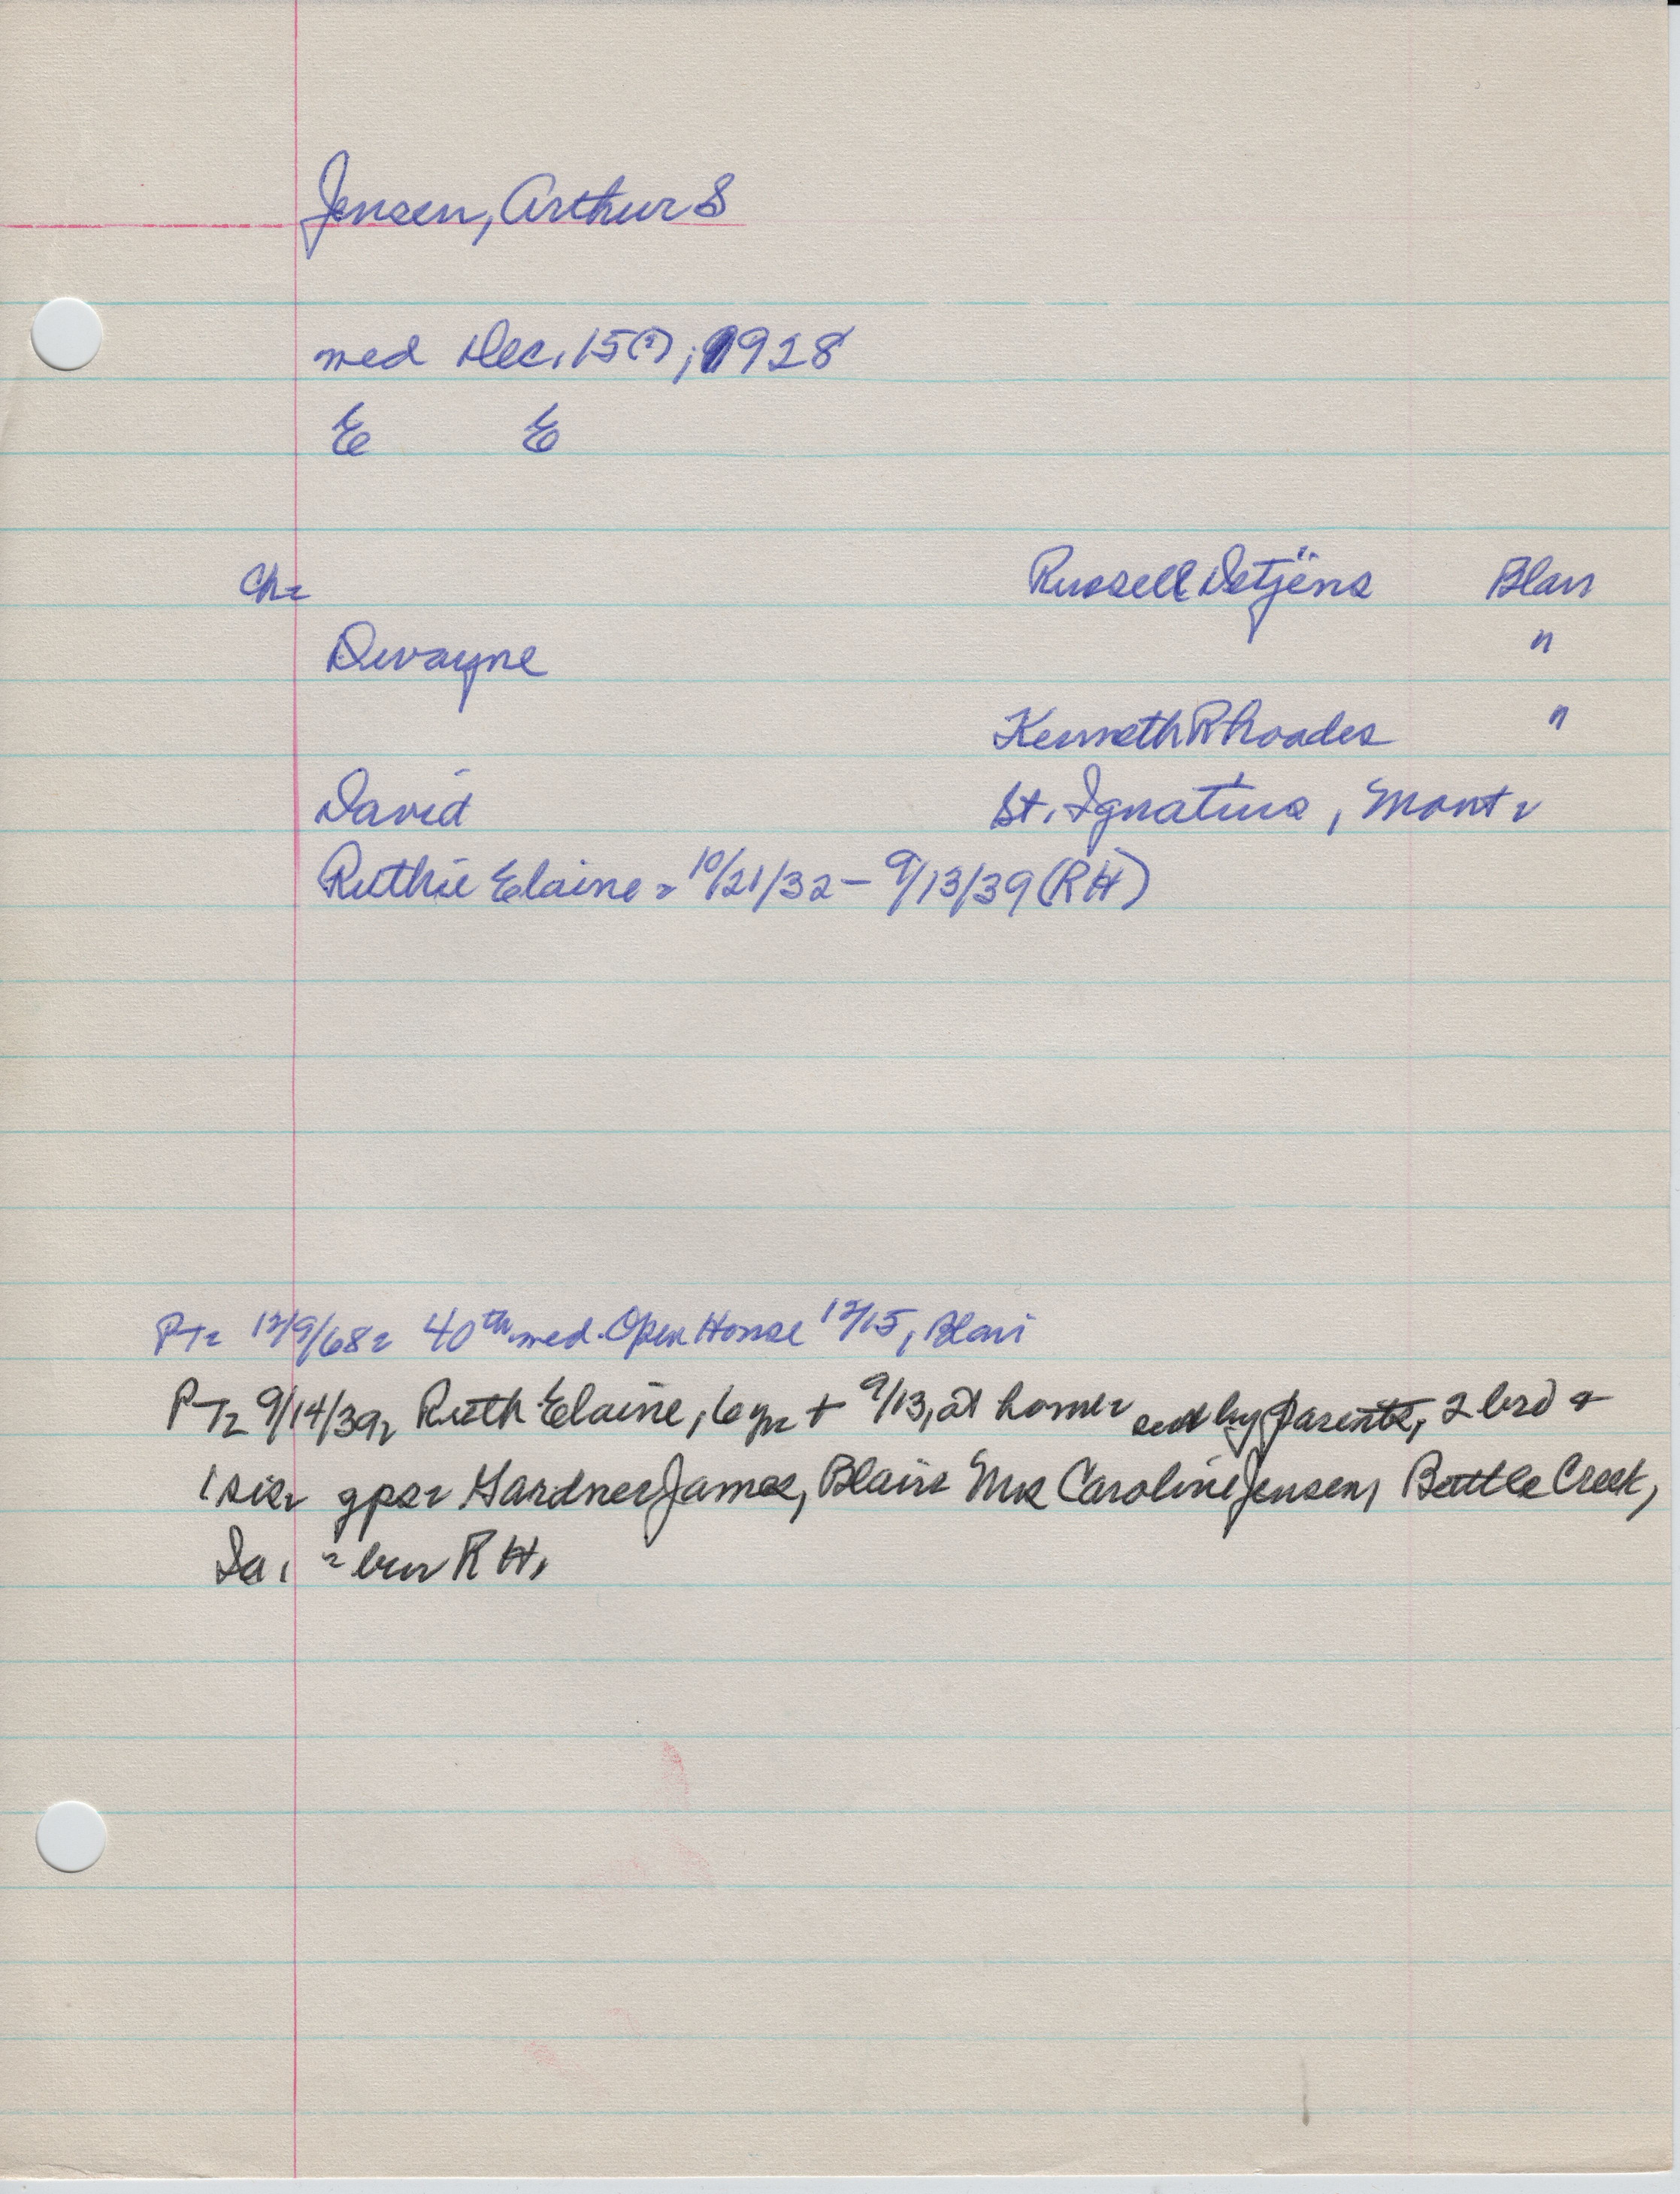 Jensen, Arthur S
med Dec. 15(?), 1928
E E
Ch- Russell Detjens Blair
Dwayne "
Kenneth Rhoades "
David St. Ignatius, Mont-
Ruthie Elaine - 10/21/32 - 9/13/39 (RH)
PT- 12/9/68- 40th med. Open House 12/15, Blair
PT- 9/14/39- Ruth Elaine, 6 yr- + 9/13, at home- by parents, 2 bro &
1 sis- gps- Gardner James, Blair- Mrs Caroline Jensen, Battle Creek,
Ia. - bur RH.